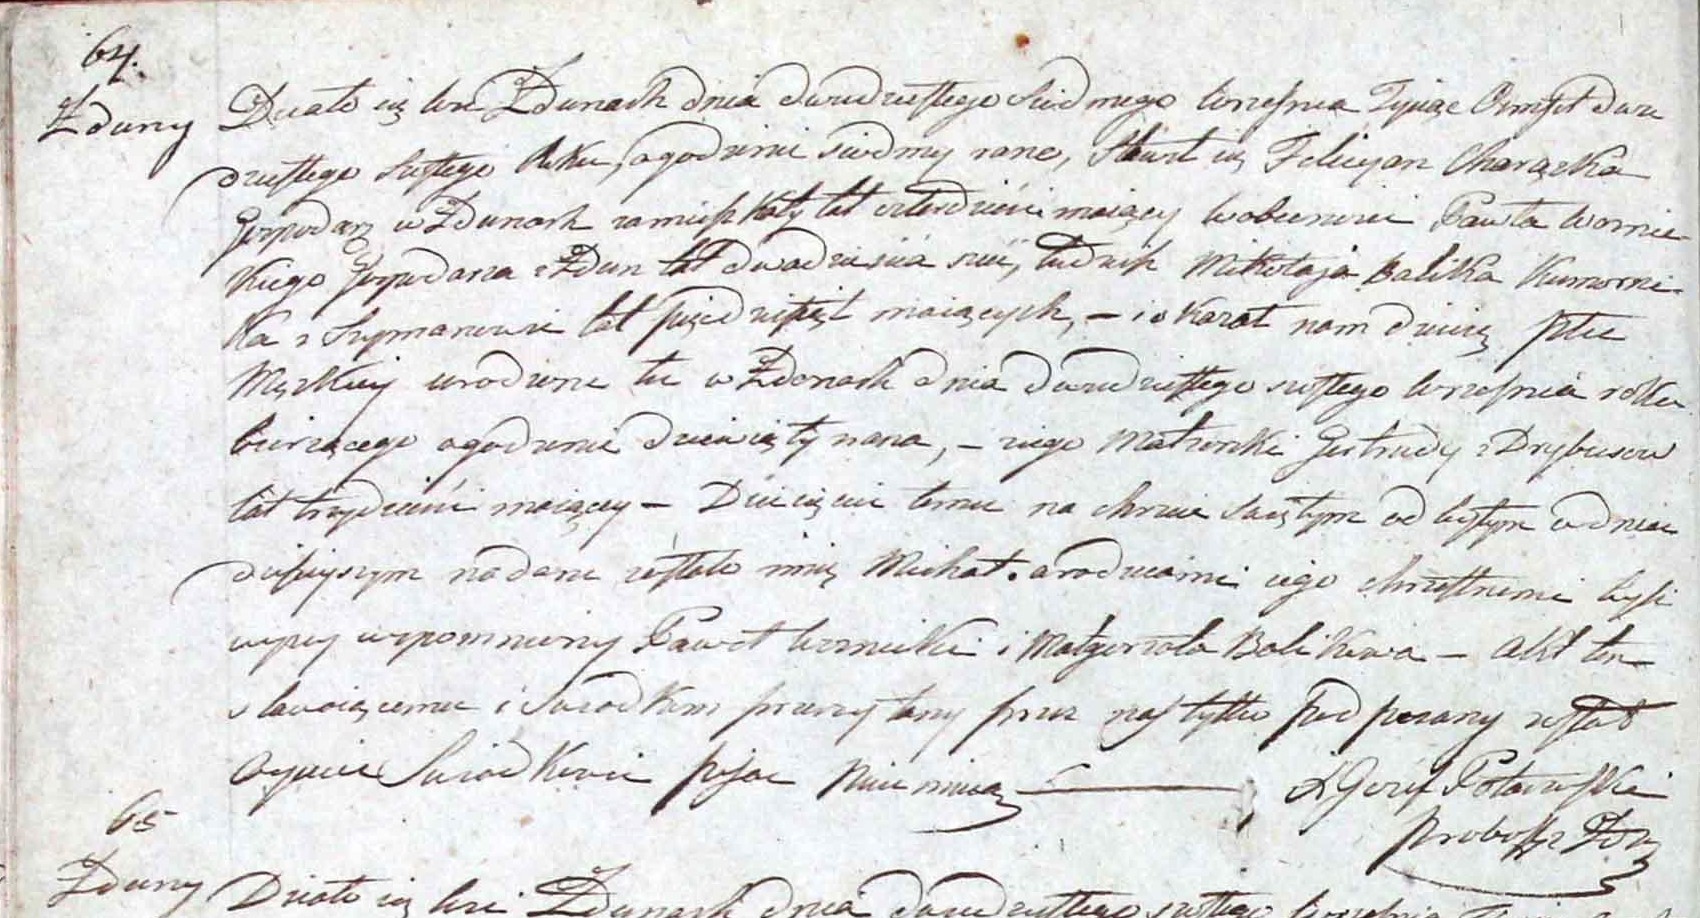 64.
Zduny
Działo się we Zdunach dnia dwudziestego siódmego września Tysiąc Ośmset dwu
dziestego szóstego Roku, o godzinie siódmy rano, Stawił się Felicyan Charążka
Gospodarz w Zdunach zamieszkały lat czterdzieści maiący w obecności Pawła Wornic-
kiego Gospodarza z Zdun lat dwadzieścia sześć, tudzież Mikołaja Balika Kumorni-
ka z Szymanowic lat pięćdziesiąt maiących, – i okazał nam dziecię płci
Męzkiey urodzone tu w Zdunach dnia dwudziestego szóstego września roku
bieżącego o godzinie dziewiąty rana, – z iego Małżonki Gertrudy z Drybusow
lat trzydzieści maiący – Dziecięciu temu na chrzcie świętym odbytym w dniu
dzisieyszym nadane zostało imię Michał. a rodzicami iego chrzestnemi byli
wyżey wspomniony Paweł Wornicki i Małgorzata Balikowa – Akt ten
stawaiącemu i świadkom przeczytany przez nas tylko podpisany został
Oyciec Świadkowie pisać nieumieią
X Józef Potawski
Proboszcz Zdu
65
Zduny
Działo się we Zdunach dnia dwudziestego szóstego września